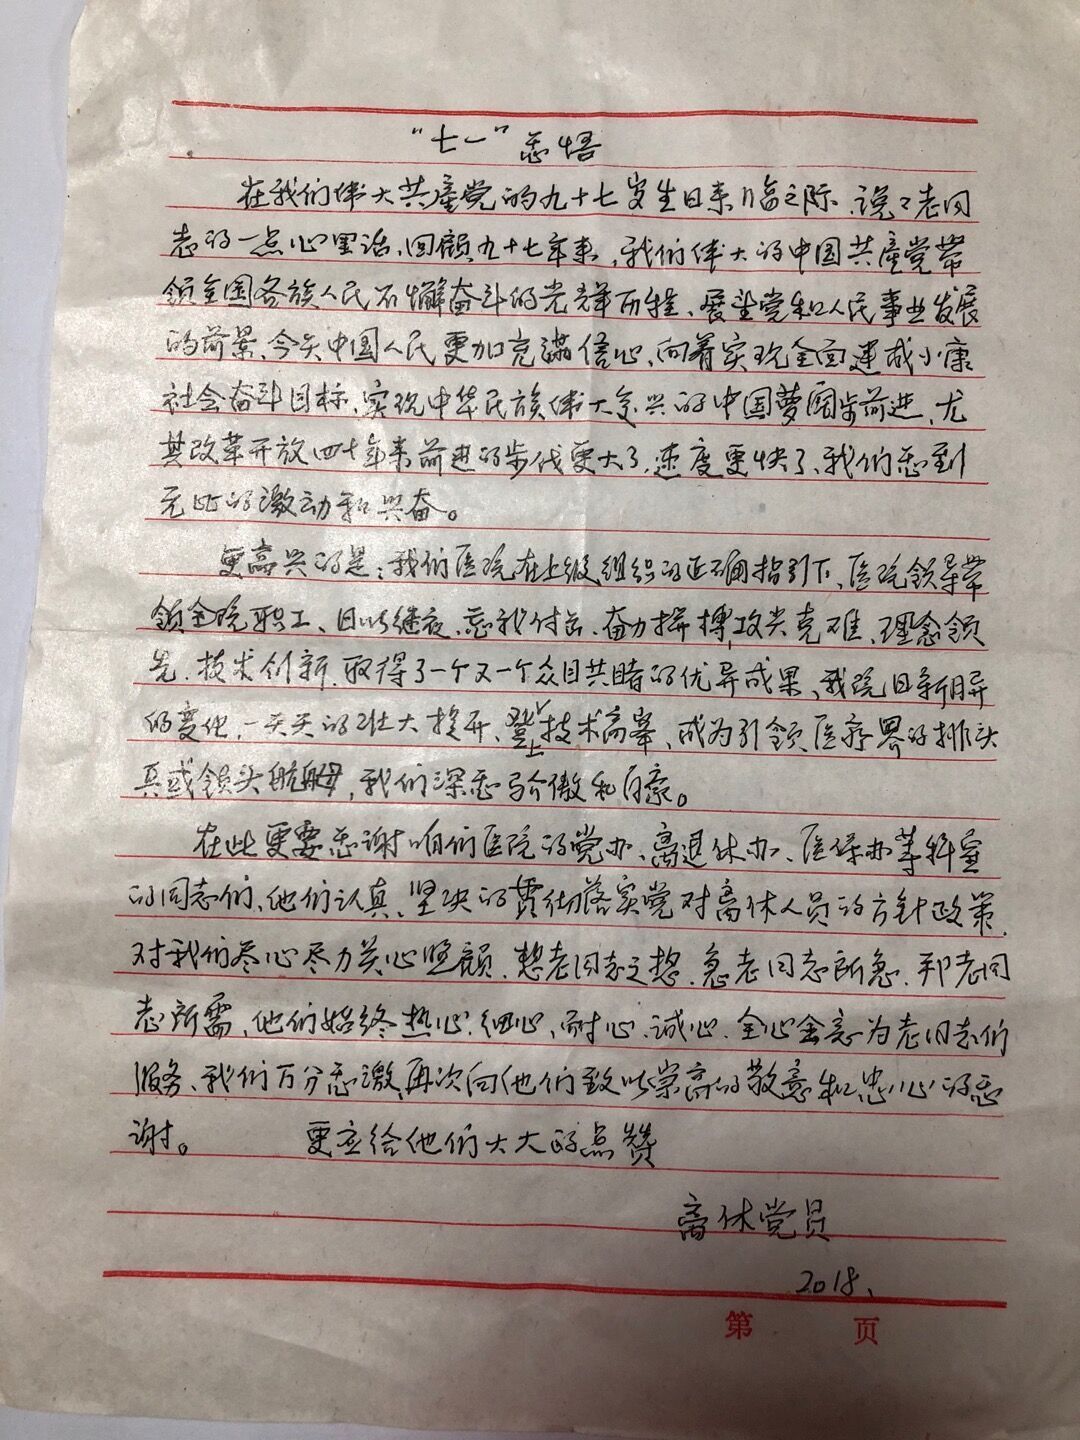 “七一”感悟
在我们伟大共產党的九十七岁生日来临之际、说々老同
志的一点心里话、回顧九十七年来，我们伟大的中国共產党带
领全国各族人民不懈奋斗的光辉历程、展望党和人民事业发展
的前景、今天中国人民更加充满信心、向着实现全面建成小康
社会奋斗目标、实现中华民族伟大复兴的中国夢阔步前进、尤
其改革开放四十年来前进的步伐更大了，速度更快了、我们感到
无比的激动和兴奋。
更高兴的是：我们医院在上级组织的正确指引下、医院领导带
领全院职工、日以继夜、忘我付出、奋力拼搏、攻关克难、理念领
先、技术创新、取得了一个又一个众目共睹的优异成果、我院日新月异
的变化，一天天的壮大提升、登上技术高峯、成为引领医疗界的排头
兵或领头航母，我们深感骄傲和自豪。
在此更要感谢咱们医院的党办、离退休办、医保办等科室
的同志们、他们认真、坚决的贯彻落实党对离休人员的方针政策、
对我们尽心尽力关心照顾、想老同志之想、急老同志所急、帮老同
志所需、他们始终热心、细心、耐心、诚心、全心全意为老同志们
服务、我们万分感激、再次向他们致以崇高的敬意和忠心的感
谢。 更应给他们大大的点赞
离休党员
2018、
第 页